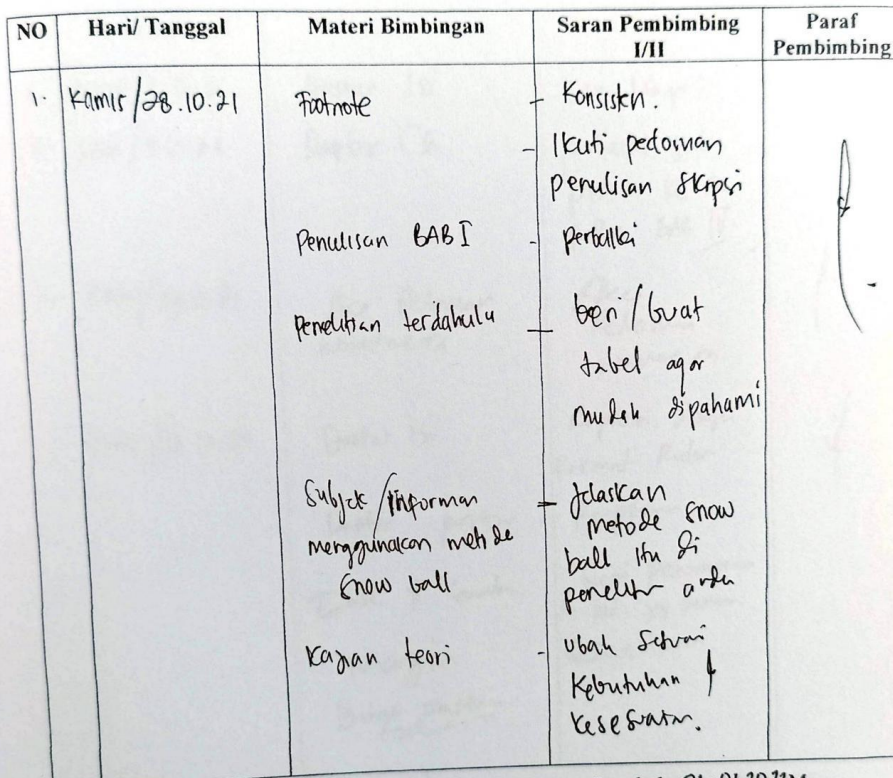 NO Hari/ Tanggal Materi Bimbingan Saran Pembimbing I/II Paraf Pembimbing
1. Kamis/28.10.21 Footnote - Konsisten.
- Ikuti pedoman
penulisan skripsi
Penulisan BAB I - perbaiki
Penelitian terdahulu - beri/buat
tabel agar
mudah dipahami
Subjek/informan - Jelaskan
menggunakan metode metode snow
snow ball ball itu di
penelitian anda
Kajian teori - Ubah sesuai
Kebutuhan &
kesesuaian.